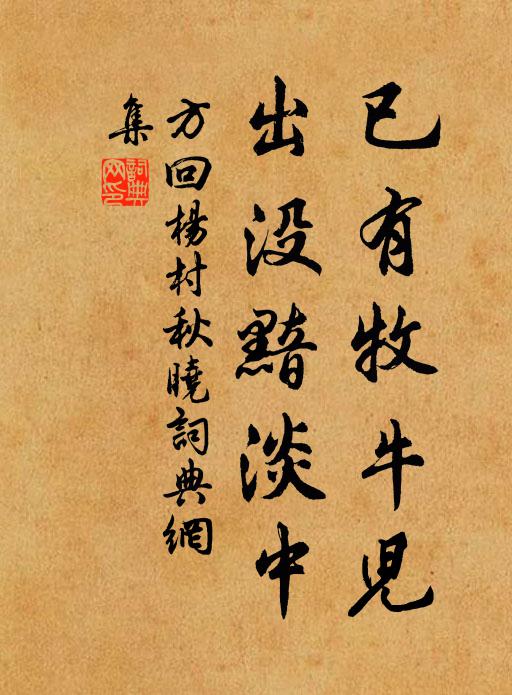 已有牧牛児
出没黯淡中
方回楊村秋曉詞典網
集
詞典
网印